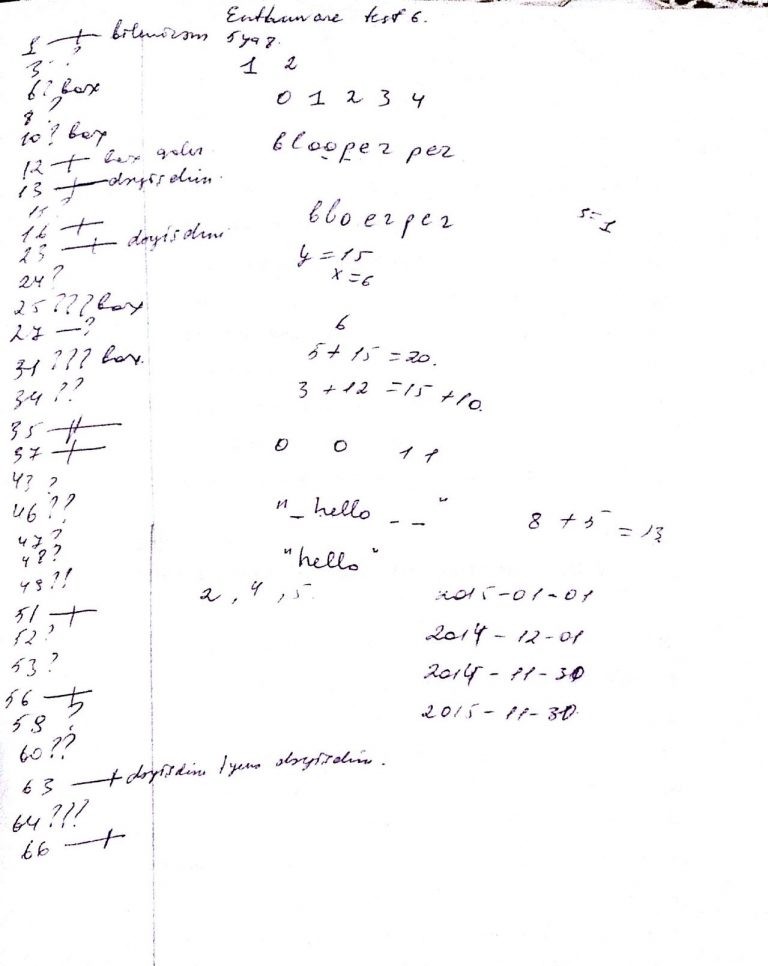 Enthuware test 6.
1 + bilmirem 5 yaz.
3 ?
1 2
6? bax
0 1 2 3 4
8 ?
10? bax
blooper per
12 + bax
13 + dəyisdim.
15
16 +
bloerper
s=1
23 + dəyisdim
y = 15
24?
x = 6
25 ??? bax
27 — ?
6
31 ??? bax.
5 + 15 = 20.
34 ??
3 + 12 = 15 + 10.
35 +
37 +
0 0 1 1
43 ?
46 ??
"_ hello _ _"
8 + 5 = 13
47?
48?
"hello"
49?!
2, 4, 5.
2015-01-01
51 +
52?
2014-12-01
53?
2014-11-30
56 +
2015-11-30.
59 ?
60 ??
63 + dəyisdim yenə dəyisdim.
64 ???
66 +